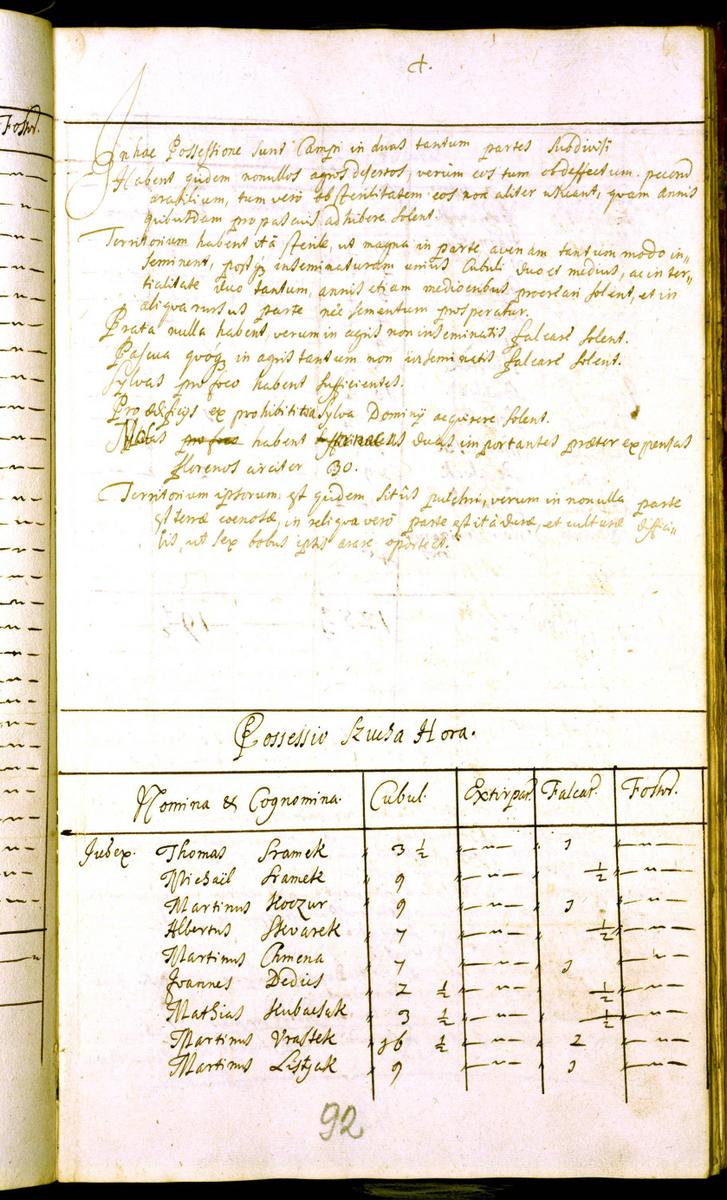 In hac Possessione sunt Campi in duas tantum partes subdivisi
Habent quidem nonnullos agros desertos, verum eos tum ob deffectum pecorum
arabilium, tum vero ob sterilitatem eos non aliter utuant, quam annis
quibusdam pro pascuis adhibere solent.
Territorium habent ita sterile, ut magna in parte avenam tantummodo in„
seminent, post inseminaturam unius Cubuli duo et medius, ac in fer„
tialitate duo tantum, annis etiam mediocribus procreari solent, et in
aliqua rursus parte nec sementum prosperatur.
Prata nulla habent, verum in agris non inseminatis falcare solent.
Pascua quoq in agris tantum non inseminatis falcare solent.
Sylvas pro foco habent sufficientes.
Pro ædificijs ex prohibita Sylva Dominij acquirere solent.
habent duas importantes præter expensas
florenos circiter 30.
Territorium ipsorum est quidem situs pulchri, verum in nonulla parte
est terræ coenosæ, in reliqua vero parte est ita duræ, et culturæ diffici„
lis, ut sex bobus ipsis arare oporteat.
Possessio Szucha Hora.
Nomina & Cognomina. Cubul. Extirpat. Falcat.
Judex. Thomas Sramek 3 ½ „ 1 „
Michail Sramek 9 „ ½ „
Martinus Koczur 9 „ 1 „
Albertus Skvarek 7 „ ½ „
Martinus Chmena 7 „ 1 „
Joannes Dedics 2 ½ „ ½ „
Mathias Hubacsak 3 ½ „ ½ „
Martinus Vrastek 16 ½ „ 2 „
Martinus Listjak 9 „ 1 „
92